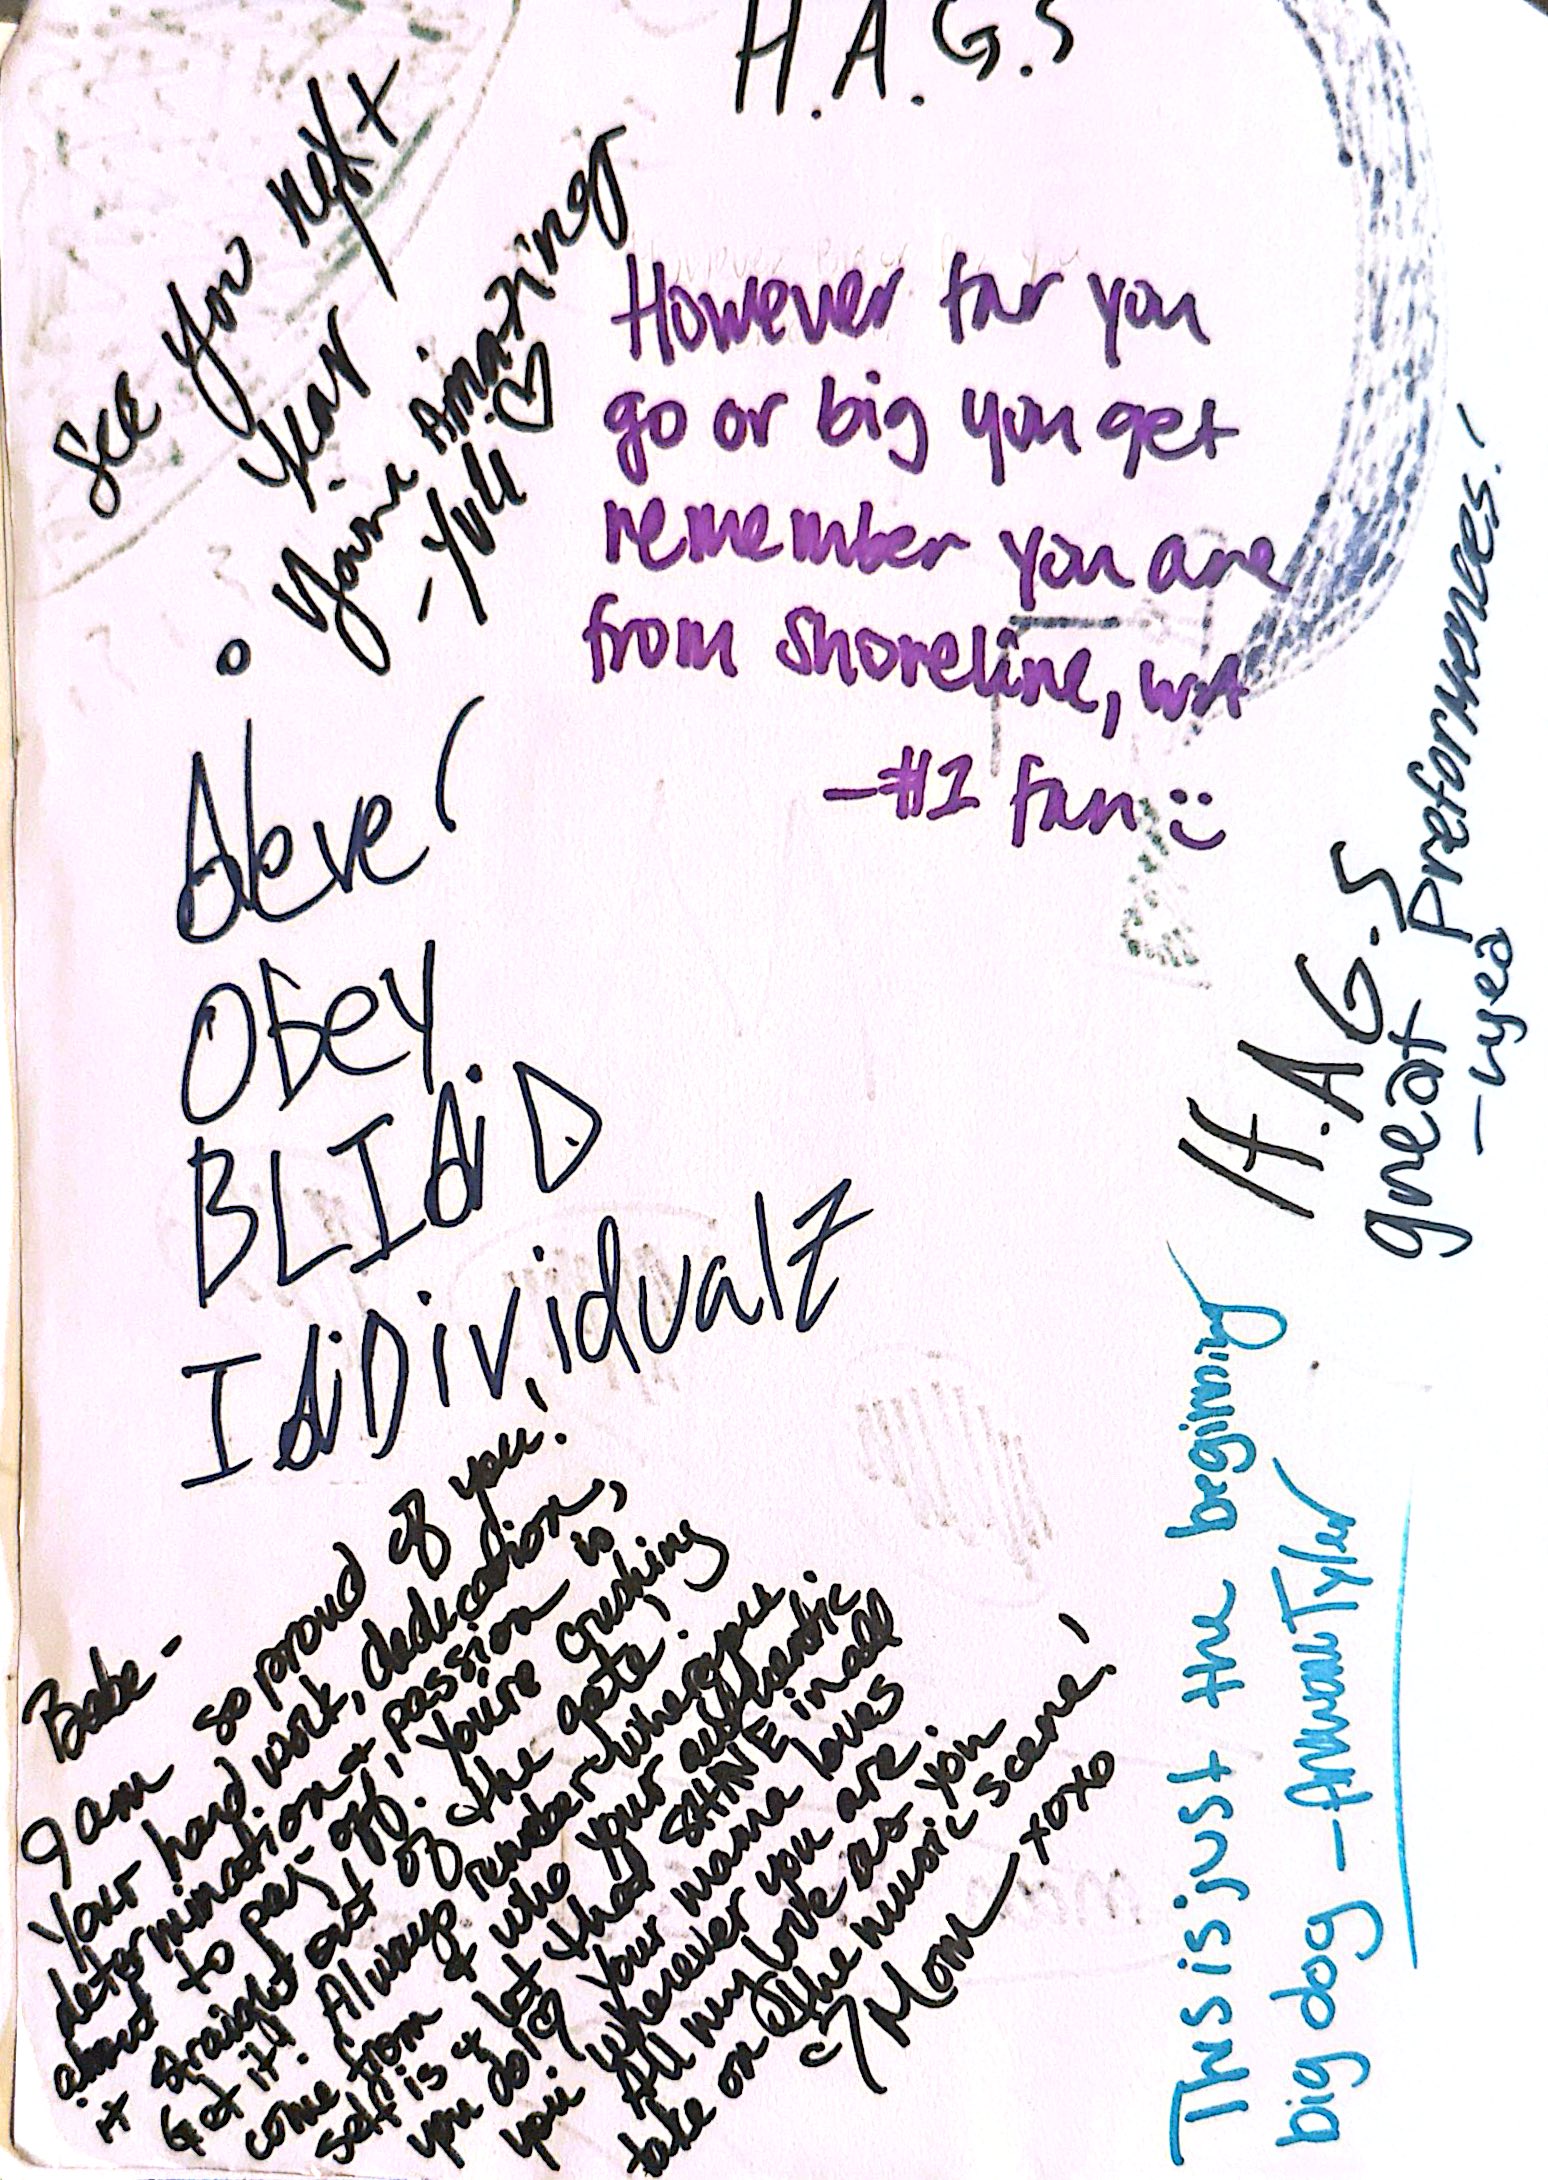 H.A.G.S
See you next
year
• your Amazing
-Yuli ♡
However far you
go or big you get
remember you are
from Shoreline, WA
-#1 fan :)
Never
Obey
BLINd
INDividualz
H.A.G.S
great Preformences!
-nyea
Babe-
I am so proud of you!
Your hard work, dedication,
determination + passion is
about to pay-off. You're crushing
it straight out of the gate!
Get it! Always remember where you
come from + who your authentic
self is + let that SHINE in all
you do! Your mama loves
you wherever you are.
All my love as you
take on the music scene!
Mom xoxo
This is just the begining
big dog - Annan Tyler